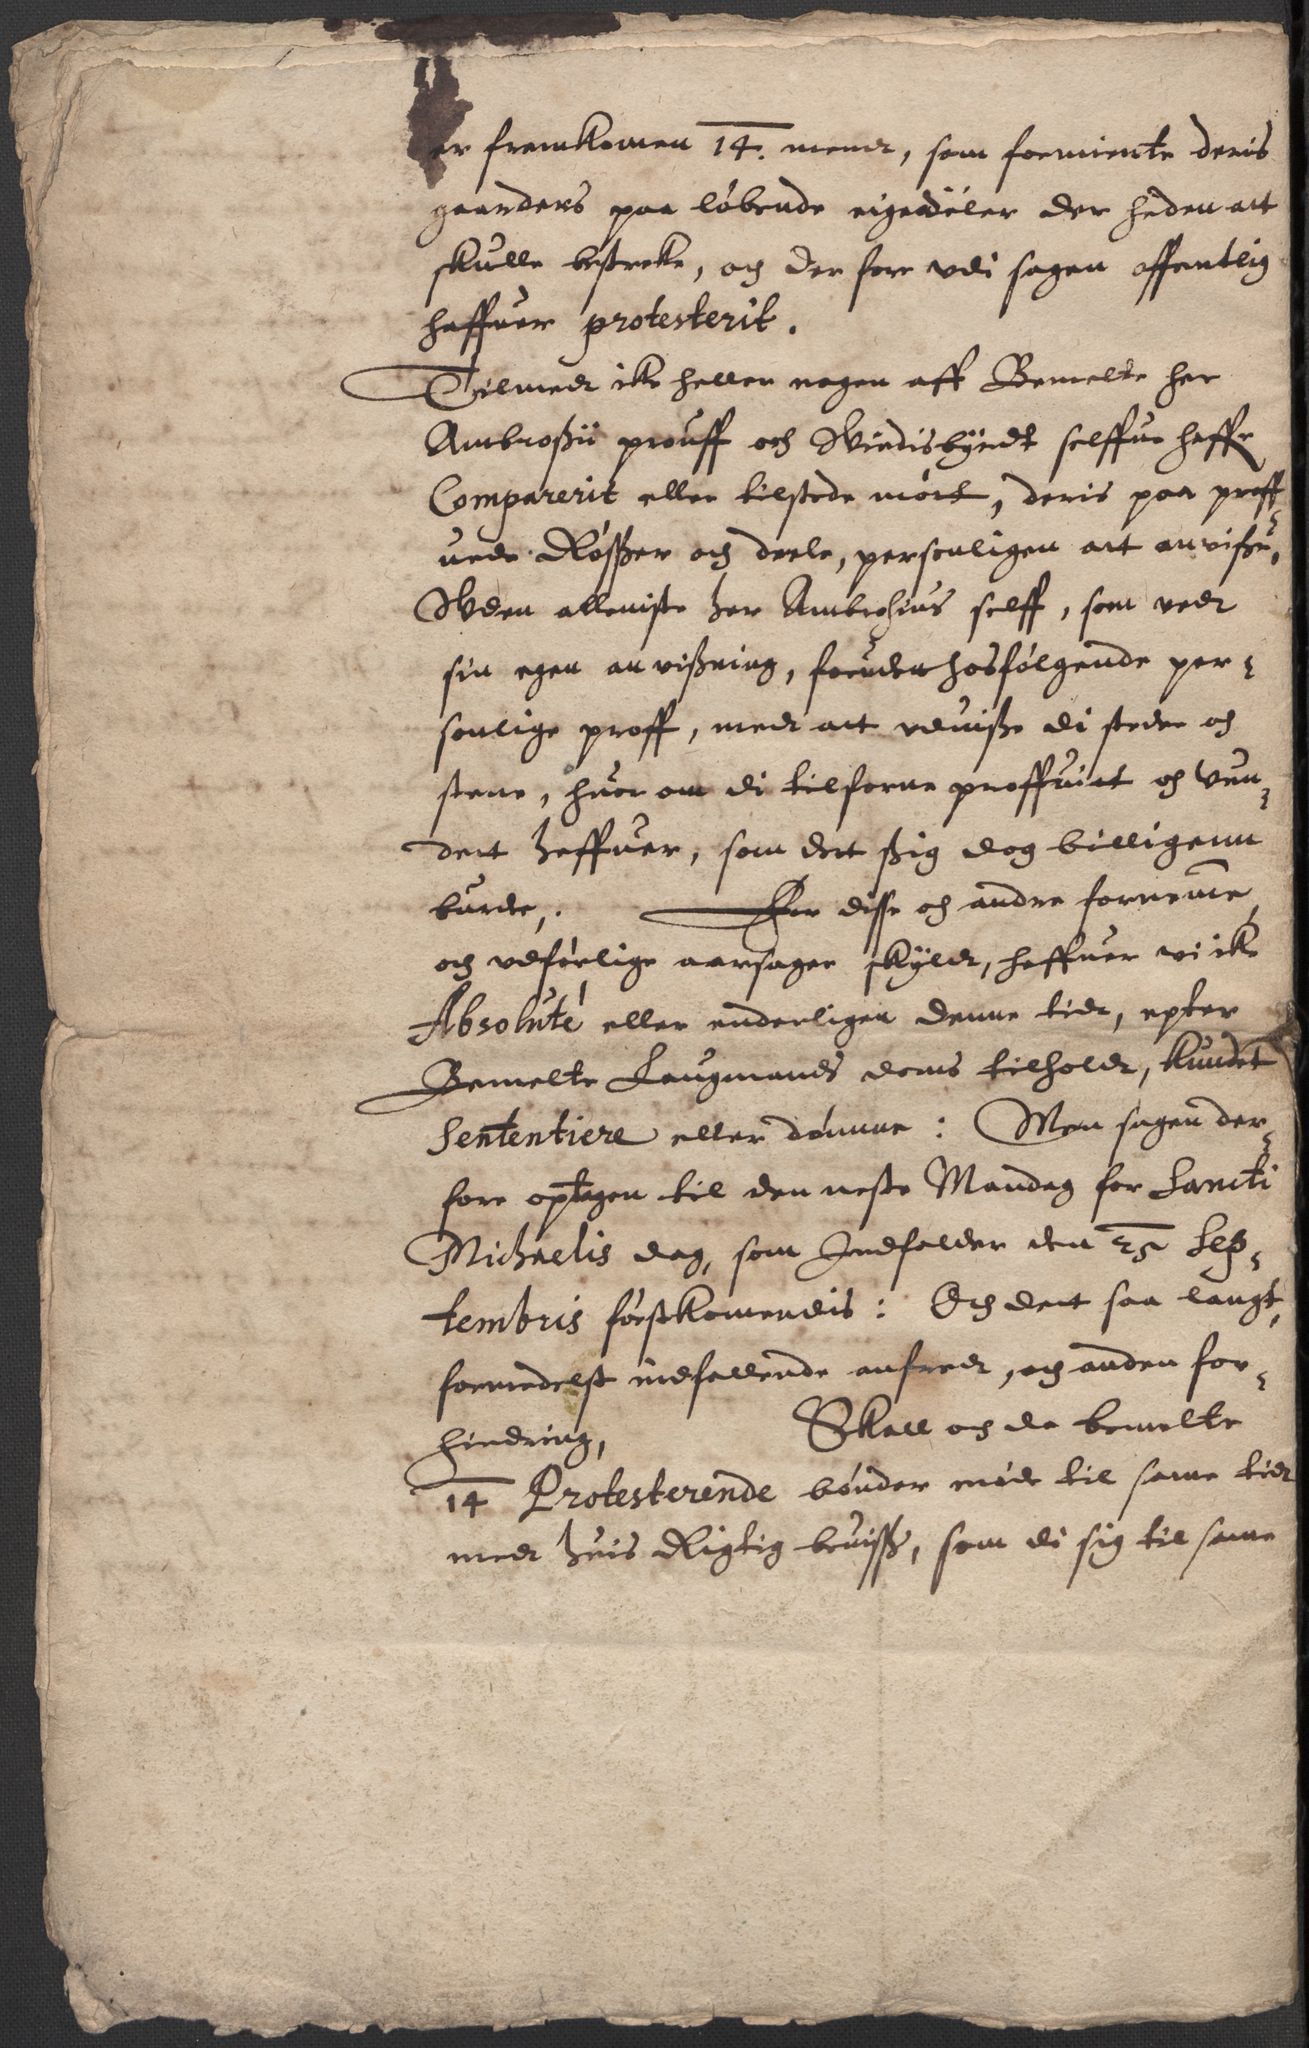 er fremkomen 14. mendt, som formiente deris
gaarders paa løbende eigedeler der heden att
skulle bestreke, och der fore vdi sagen offentlig
haffuer protesterit.
Tilmedt ike heller nogen aff Bemelte her
Ambrosii prouff och Vindisbyrdt selffue haffr
Comparerit eller tilstede mørt, deris paa proff-
uede Røsser och deele, personligen att anvisse,
Vden alleniste her Ambrosius selff, som vedt
sin egen anvissning, foruden hosfølgende per-
sonlige proff, medt att vduisse di steder och
stene, huor om di tilforne proffuit och vun-
dett heffuer, som dett sig dog billigenn
burde,. For disse och andre fornemme
och vdførlige aarsager skyldt, haffuer vi ike
Absoluté eller enderligen denne tidt, epter
Bemelte Laugmands doms tilholdt, kundet
Sententiere eller dømme: Men sagen der-
fore optagen til den neste Mandag for Sancti
Michaelis dag, som Indfalder den 25 Sep-
tembris førstkomendis: Och dett saa langt,
formedelst indfallende anfredt, och anden for-
hindring, Skall och da bemelte
14 Protesterende bønder møde til same tidt
medt huis Rigtig beuiss, som di sig til same